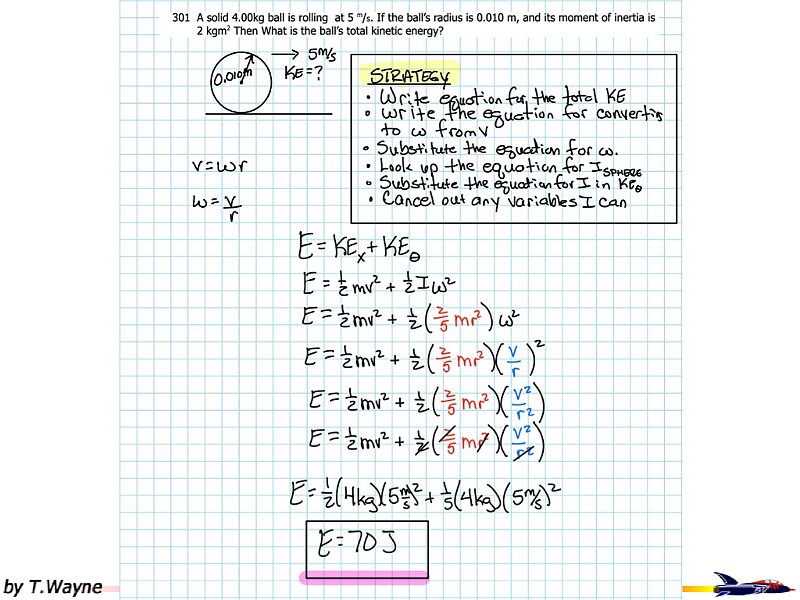 301 A solid 4.00kg ball is rolling at 5 m/s. If the ball's radius is 0.010 m, and its moment of inertia is
2 kgm² Then What is the ball's total kinetic energy?
0.010m
5 m/s
KE=?
STRATEGY
• Write equation for the total KE
• Write the equation for converting
to ω from v
• Substitute the equation for ω.
• Look up the equation for I SPHERE
• Substitute the equation for I in KEθ
• Cancel out any variables I can
v=ωr
ω=v/r
E=KEx+KEθ
E=½mv²+½Iω²
E=½mv²+½(2/5 mr²)ω²
E=½mv²+½(2/5 mr²)(v/r)²
E=½mv²+½(2/5 mr²)(v²/r²)
E=½mv²+½(2/5 mr²)(v²/r²)
E=½(4kg)(5 m/s)²+⅕(4kg)(5 m/s)²
E=70J
by T.Wayne